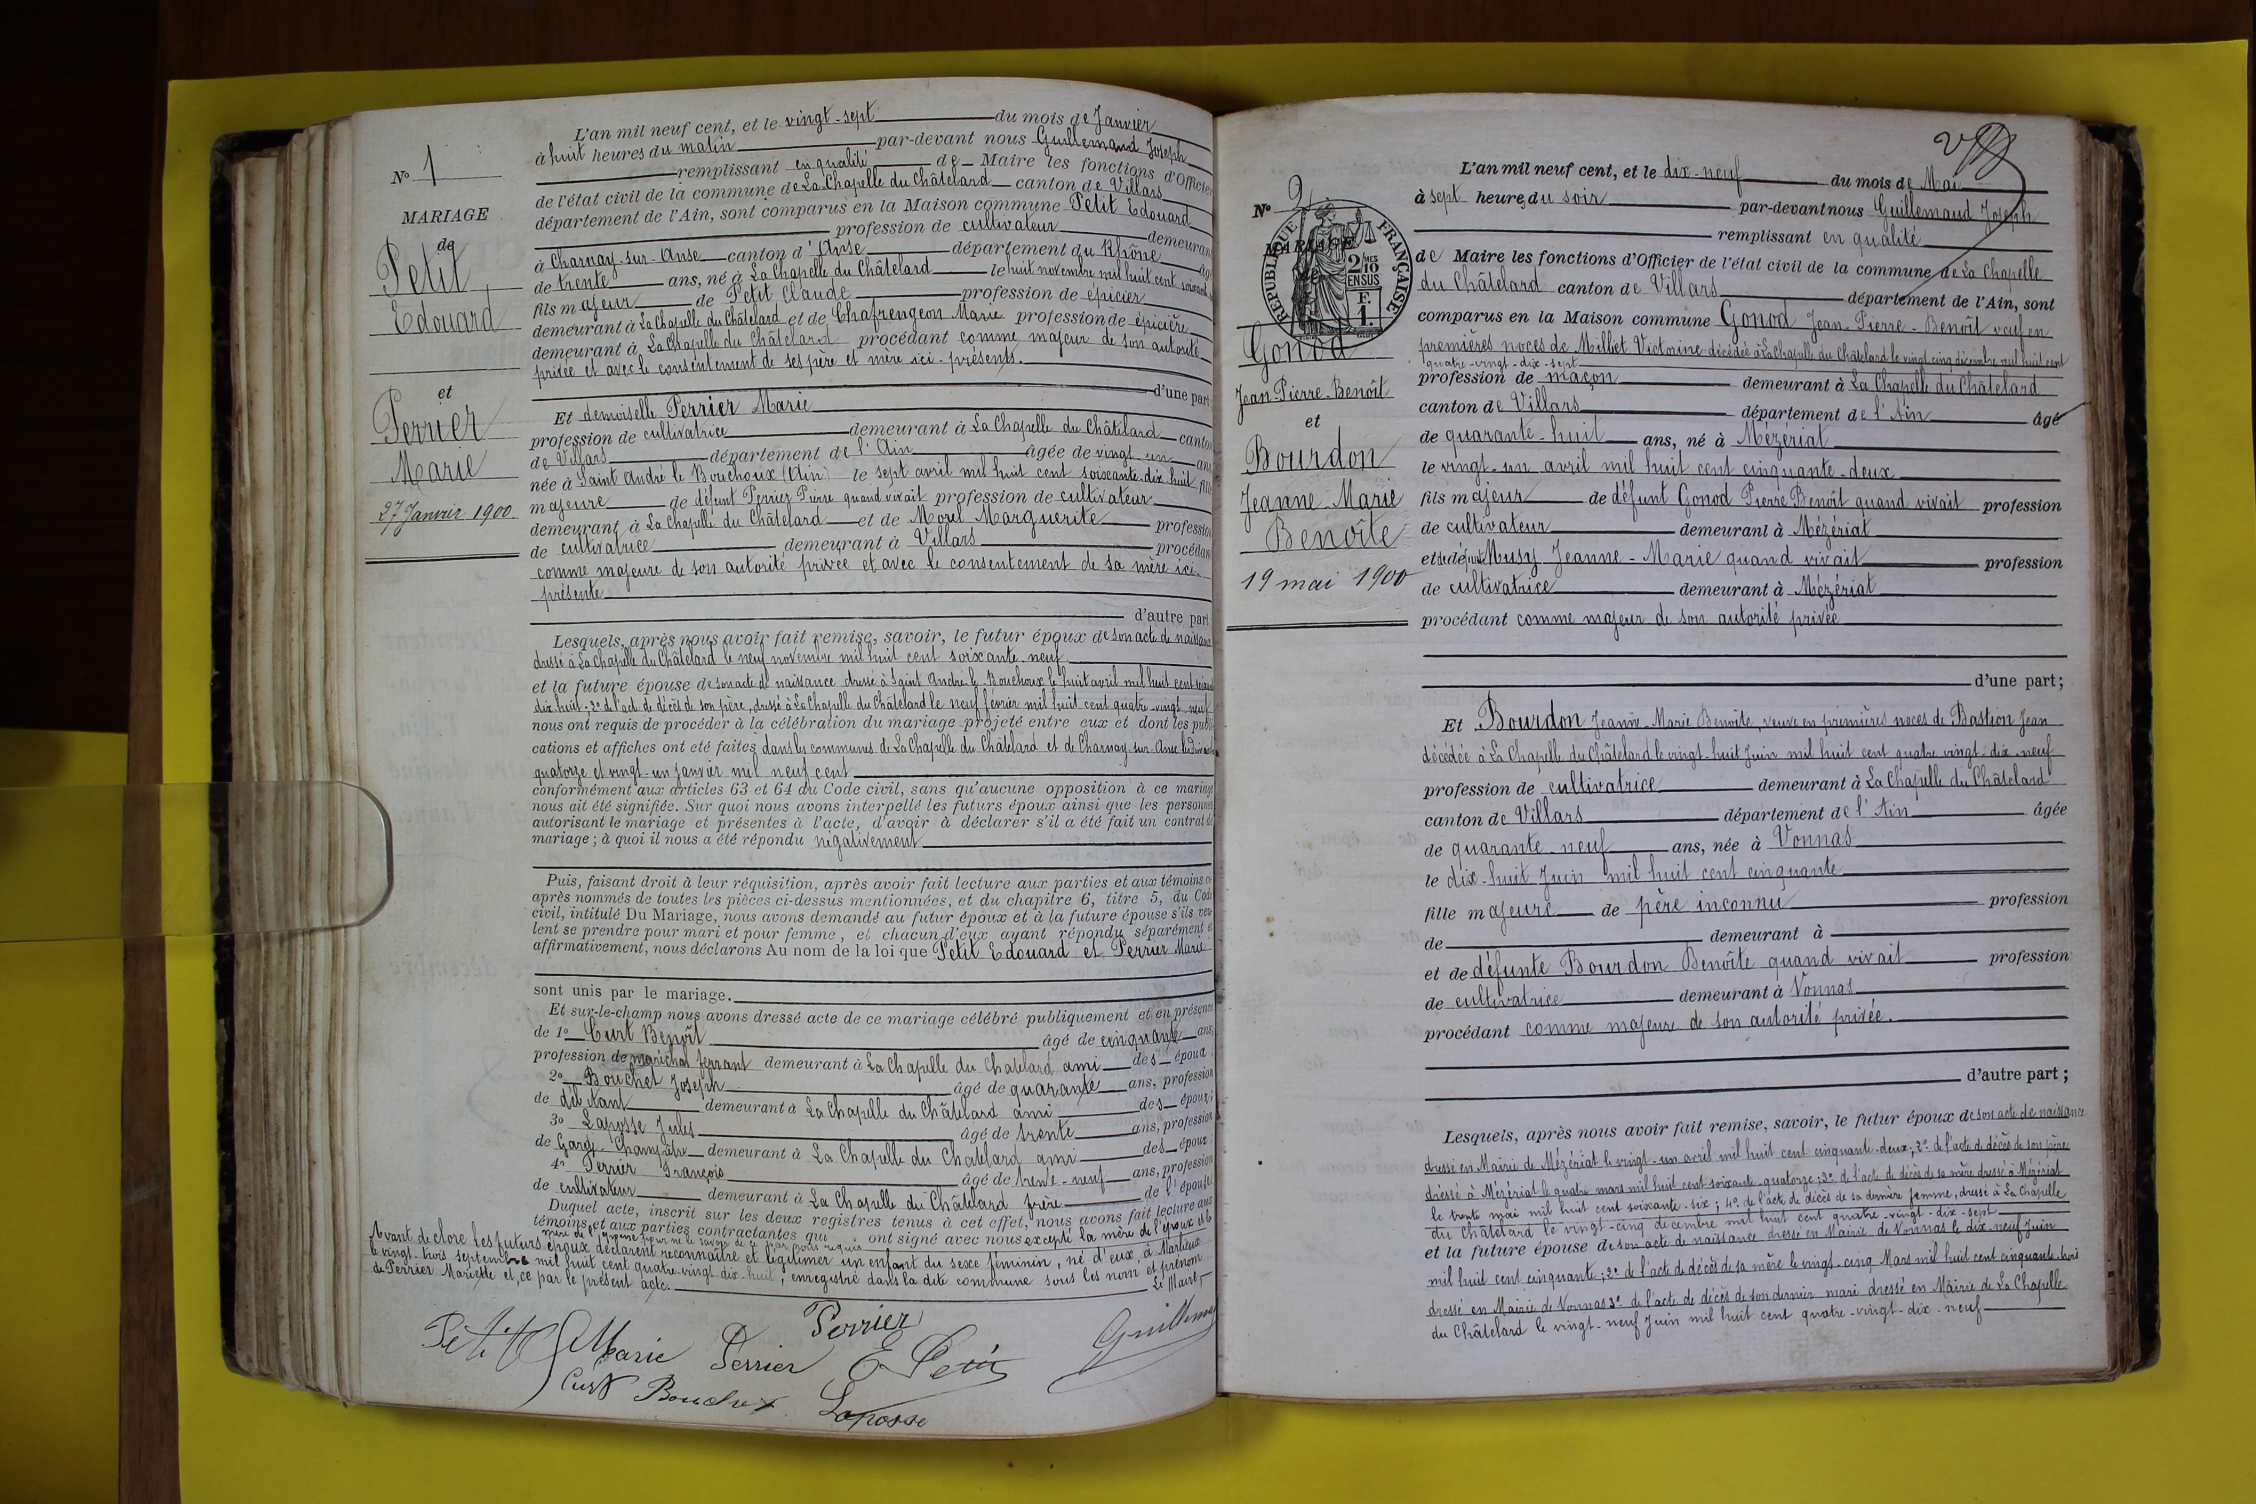 N° 1
MARIAGE
de
Petit
Edouard
et
Perrier
Marie
27 Janvier 1900
L'an mil neuf cent, et le vingt-sept du mois de Janvier
à huit heures du matin par-devant nous Guillemaud Joseph
remplissant en qualité de Maire les fonctions d'Officier
de l'état civil de la commune de La Chapelle du Châtelard canton de Villars
département de l'Ain, sont comparus en la Maison commune Petit Edouard
profession de cultivateur demeurant
à Charnay-sur-Anse canton d'Anse département du Rhône
de trente ans, né à La Chapelle du Châtelard le huit novembre mil huit cent
fils majeur de Petit Claude profession de épicier
demeurant à La Chapelle du Châtelard et de Chafrengeon Marie profession de épicière
demeurant à La Chapelle du Châtelard procédant comme majeur de son autorité
privée et avec le consentement de ses père et mère ici-présents.
d'une part
Et demoiselle Perrier Marie
profession de cultivatrice demeurant à La Chapelle du Châtelard canton
de Villars département de l'Ain âgée de vingt un ans
née à Saint André le Bouchoux (Ain) le sept avril mil huit cent soixante-dix huit fille
majeure de défunt Perrier Pierre quand vivait profession de cultivateur
demeurant à La Chapelle du Châtelard et de Morel Marguerite profession
de cultivatrice demeurant à Villars procédant
comme majeure de son autorité privée et avec le consentement de sa mère ici-
présente
d'autre part
Lesquels, après nous avoir fait remise, savoir, le futur époux de son acte de naissance
dressé à La Chapelle du Châtelard le neuf novembre mil huit cent soixante-neuf
et la future épouse de son acte de naissance dressé à Saint André le Bouchoux le huit avril mil huit cent
dix huit; 2° de l'acte de décès de son père, dressé à La Chapelle du Châtelard le neuf février mil huit cent quatre-vingt neuf
nous ont requis de procéder à la célébration du mariage projeté entre eux et dont les publi
cations et affiches ont été faites dans les communes de La Chapelle du Châtelard et de Charnay-sur-Anse les
quatorze et vingt-un janvier mil neuf cent
conformément aux articles 63 et 64 du Code civil, sans qu'aucune opposition à ce mariage
nous ait été signifiée. Sur quoi nous avons interpellé les futurs époux ainsi que les personnes
autorisant le mariage et présentes à l'acte, d'avoir à déclarer s'il a été fait un contrat de
mariage; à quoi il nous a été répondu négativement
Puis, faisant droit à leur réquisition, après avoir fait lecture aux parties et aux témoins ci
après nommés de toutes les pièces ci-dessus mentionnées, et du chapitre 6, titre 5, du Code
civil, intitulé Du Mariage, nous avons demandé au futur époux et à la future épouse s'ils veu
lent se prendre pour mari et pour femme, et chacun d'eux ayant répondu séparément et
affirmativement, nous déclarons Au nom de la loi que Petit Edouard et Perrier Marie
sont unis par le mariage.
Et sur-le-champ nous avons dressé acte de ce mariage célébré publiquement et en présence
de 1° Curt Benoît âgé de cinquante ans
profession de maréchal ferrant demeurant à La Chapelle du Châtelard ami des époux
2° Bouchet Joseph âgé de quarante ans, profession
de débitant demeurant à La Chapelle du Châtelard ami des époux
3° Laposse Jules âgé de trente ans, profession
de Garde-Champêtre demeurant à La Chapelle du Châtelard ami des époux
4° Perrier François âgé de trente-neuf ans, profession
de cultivateur demeurant à La Chapelle du Châtelard frère de l'épouse
Duquel acte, inscrit sur les deux registres tenus à cet effet, nous avons fait lecture aux
témoins et aux parties contractantes qui ont signé avec nous excepté la mère de l'époux et la
mère de l'épouse pour ne le savoir de ce par nous requis
Avant de clore les futurs époux déclarent reconnaître et légitimer un enfant du sexe féminin, né d'eux, à Marlieux
le vingt-trois septembre mil huit cent quatre-vingt dix-huit; enregistré dans la dite commune sous les nom et prénom
de Perrier Mariette et, ce par le présent acte. Le Maire,
Petit Marie Perrier Perrier E Petit Guillemaud
Curt Bouchet Laposse
N° 2
MARIAGE
de
RÉPUBLIQUE FRANÇAISE
2/10
EN SUS
F.
1.
Gonod
Jean-Pierre-Benoît
et
Bourdon
Jeanne-Marie
Benoîte
19 mai 1900
L'an mil neuf cent, et le dix-neuf du mois de Mai
à sept heures du soir par-devant nous Guillemaud Joseph
remplissant en qualité
de Maire les fonctions d'Officier de l'état civil de la commune de La Chapelle
du Châtelard canton de Villars département de l'Ain, sont
comparus en la Maison commune Gonod Jean-Pierre-Benoît veuf en
premières noces de Milliet Victorine décédée à La Chapelle du Châtelard le vingt-cinq décembre mil huit cent
quatre-vingt-dix-sept
profession de maçon demeurant à La Chapelle du Châtelard
canton de Villars département de l'Ain âgé
de quarante-huit ans, né à Mézériat
le vingt-un avril mil huit cent cinquante-deux
fils majeur de défunt Gonod Pierre Benoît quand vivait profession
de cultivateur demeurant à Mézériat
et de défunte Musy Jeanne-Marie quand vivait profession
de cultivatrice demeurant à Mézériat
procédant comme majeur de son autorité privée
d'une part;
Et Bourdon Jeanne-Marie Benoîte, veuve en premières noces de Bastion Jean
décédée à La Chapelle du Châtelard le vingt-huit Juin mil huit cent quatre vingt-dix-neuf
profession de cultivatrice demeurant à La Chapelle du Châtelard
canton de Villars département de l'Ain âgée
de quarante-neuf ans, née à Vonnas
le dix-huit Juin mil huit cent cinquante
fille majeure de père inconnu profession
de demeurant à
et de défunte Bourdon Benoîte quand vivait profession
de cultivatrice demeurant à Vonnas
procédant comme majeure de son autorité privée.
d'autre part;
Lesquels, après nous avoir fait remise, savoir, le futur époux de son acte de naissance
dressé en Mairie de Mézériat le vingt-un avril mil huit cent cinquante-deux; 2° de l'acte de décès de son père
dressé à Mézériat le quatre mars mil huit cent soixante-quatorze; 3° de l'acte de décès de sa mère dressé à Mézériat
le trente mai mil huit cent soixante-six; 4° de l'acte de décès de sa dernière femme, dressé à La Chapelle
du Châtelard le vingt-cinq décembre mil huit cent quatre-vingt-dix-sept
et la future épouse de son acte de naissance dressé en Mairie de Vonnas le dix-neuf Juin
mil huit cent cinquante; 2° de l'acte de décès de sa mère le vingt-cinq Mars mil huit cent cinquante-trois
dressé en Mairie de Vonnas 3° de l'acte de décès de son dernier mari dressé en Mairie de La Chapelle
du Châtelard le vingt-neuf Juin mil huit cent quatre-vingt-dix-neuf